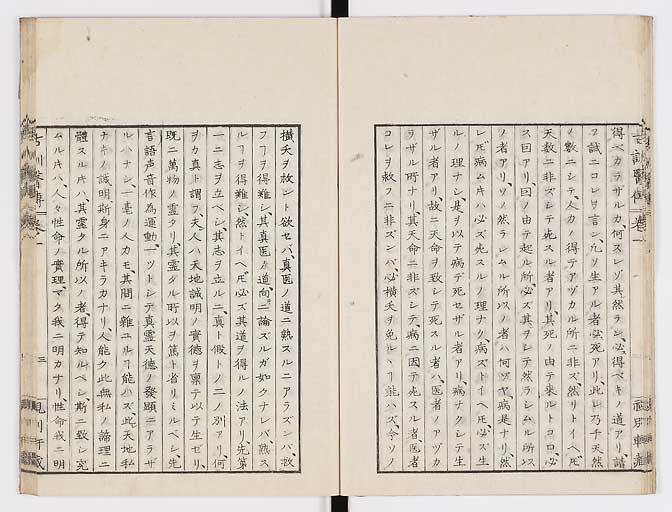 得ベカラザルカ、何スレゾ其然ラン、必得ベキノ道アリ、請
フ誠ニコレヲ言ン、凡ソ生アル者必死アリ、此レ乃チ天然
ノ數ニシテ、人力ノ得テアヅカル所ニ非ズ、然リトイヘ𪜈
天數ニ非ズシテ死スル者アリ、其死ノ由テ来ルトコロ、必
ス因アリ、因ノ由テ起ル所、必ズ其ヲシテ然ラシムル所以
ノ者アリ、ソノ然ラシムル所以ノ者ハ何ゾヤ、病是ナリ、然
レ𪜈病ム片ハ必ズ死スルノ理ナク、病ズトイヘ𪜈必ズ生
ルノ理ナシ、是ヲ以テ病デ死セザル者アリ、病ナクシテ生
ザル者アリ、故ニ天命ヲ致シテ死スル者ハ、医者ノアヅカ
ラザル所ナリ、其天命ニ非ズシテ、病ニ因テ死スル者、医者
コレヲ救フニ非ズンバ、必横夭ヲ免ルヿ能ハズ、今ソノ
横夭ヲ救ント欲セバ、真医ノ道ニ熟スルニアラズンバ、救
フヿヲ得難シ、其真医ノ道、向ニ論ズルガ如クナレバ、熟ス
ルヿヲ得難シ、然トイヘ𪜈必ズ其道ヲ得ルノ法アリ、先第
一ニ志ヲ立ベシ、其志ヲ立ルニ、真ト假トノ二ノ別アリ、何
ヲカ真ト謂フ、夫人ハ天地誠明ノ實徳ヲ稟テ以テ生ゼリ、
既ニ萬物ノ霊タリ、其霊タル所以ヲ篤ト省リミルベシ、先
言語声音作為運動、一ツトシテ真霊天徳ノ發顕ニアラザ
ルハナシ、一毫ノ人力モ、其間ニ雑ユルヿ能ハズ、此天地私
ナキノ誠明、斯身ニアキラカナリ、人能ク此無私ノ諦理ニ
體スル片ハ、其霊タル所以ノ者、得テ知ルベシ、斯ニ致シ究
ムル片ハ、人々性命ノ實理、マタ我ニ明カナリ、性命我ニ明
三